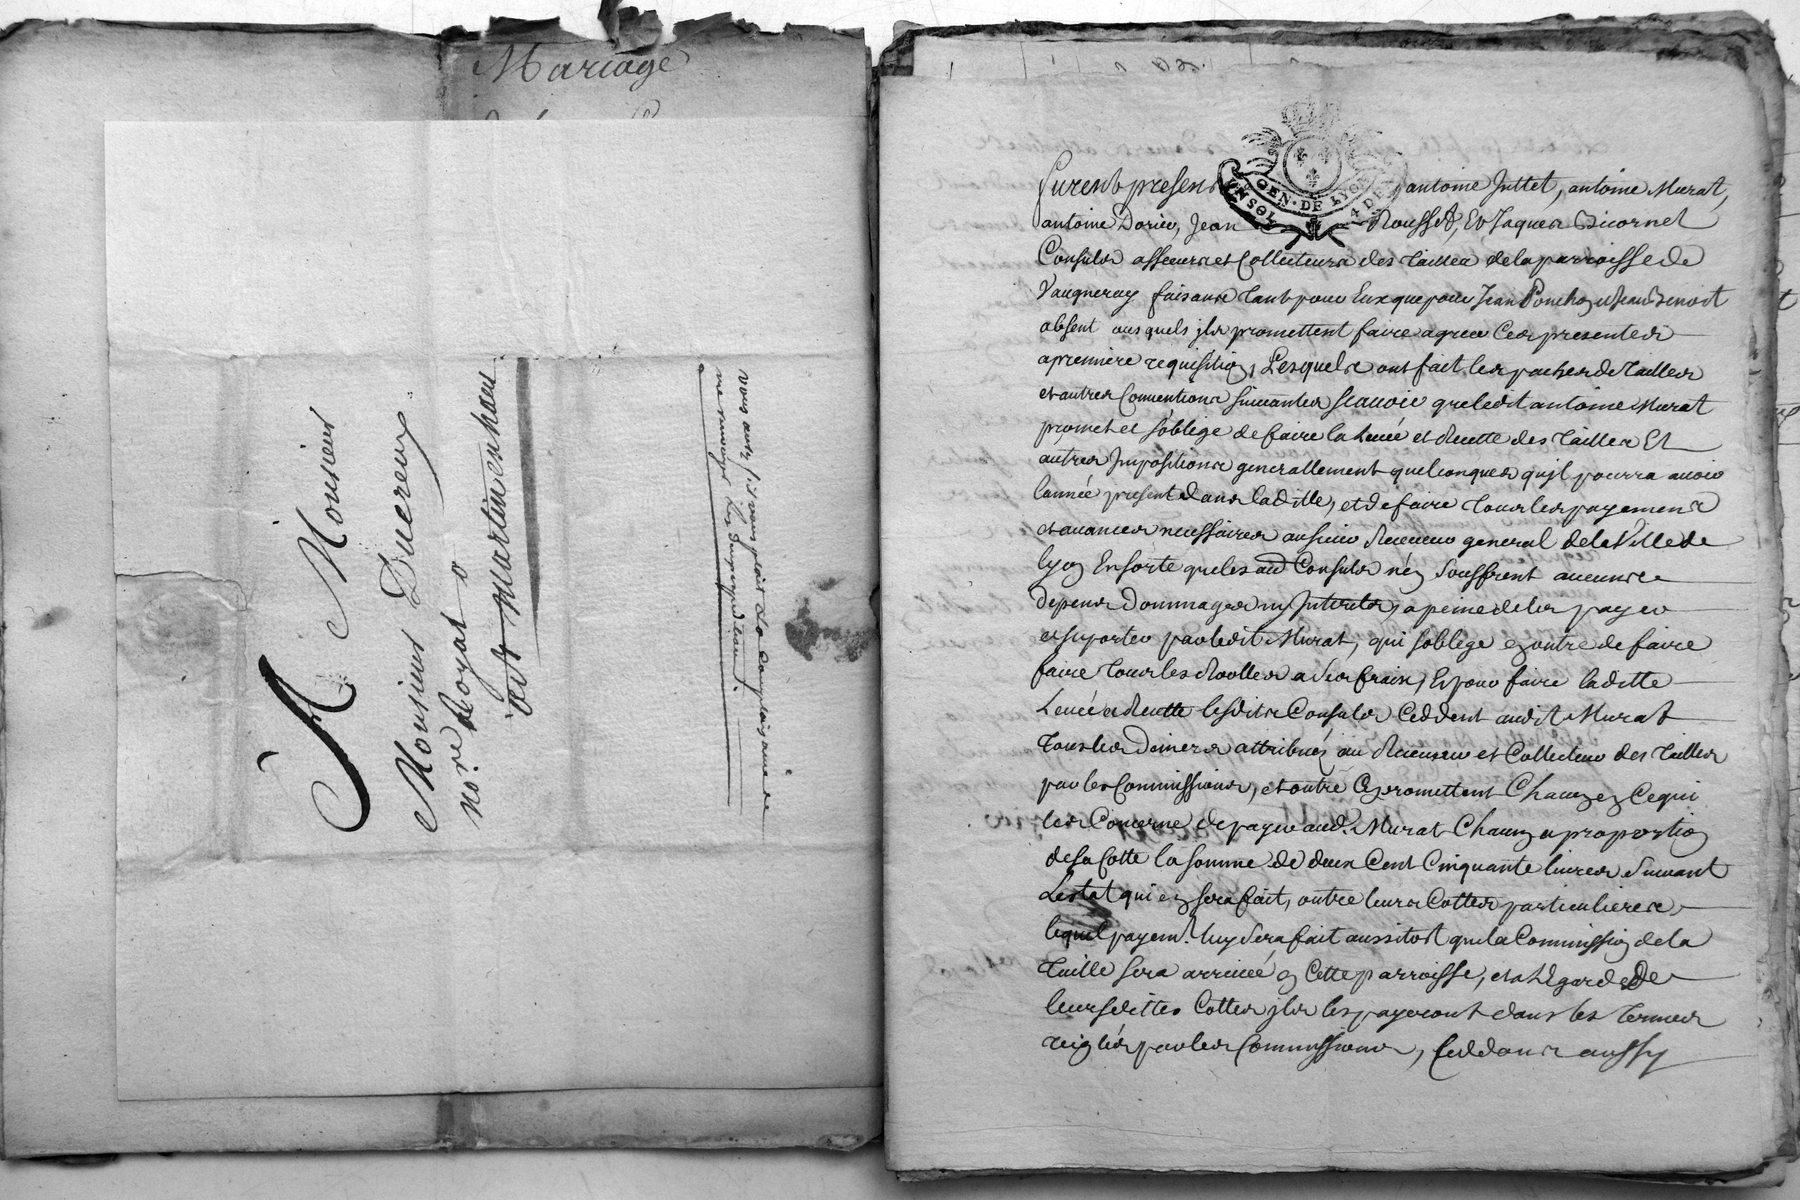 Mariage
A Monsieur
Monsieur Ducreux
no.re Royal a
st Martin en haut
vous aurez s'il vous plait la complaisance de
me renvoyer les
GEN · DE LYON
4 D
furent presens antoine Juttet, antoine Murat,
antoine Dorieu, Jean Rousset, Et Jaques Bicornet
Consuls asseeurs et Collecteurs des tailles de la parroisse de
Vaugneray faisans tant pour Eux que pour Jean Ponchon et Jean Benoit
absent ausquels jls promettent faire agreer Ces presentes
a premiere requisition, Lesquels ont fait les paches de tailles
et autres Conventions suivantes scavoir que ledit antoine Murat
promet et soblige de faire la Levée et Recette des tailles Et
autres Impositions generallement quelconques qujl pourra avoir
lannée presente dans laditte, et de faire tous les payemens
et avances necessaires au sieur Receveur general de la Ville de
lyon En sorte que les ad Consuls n'en souffrent aucunes
depens dommages ny Interets, a peine de les payer
et suporter par ledit Murat, qui soblege en outre de faire
faire tous les Rolles a ses frais, Et pour faire laditte
Levée et Recette lesdits Consuls Ceddent audit Murat
tous les deniers attribués au Receveur et Collecteur des tailles
par les Commissions, et outre Ce promettent Chacun en Ce qui
les Concerne de payer aud. Murat Chacun a proportion
de sa Cotte la somme de deux Cent Cinquante livres suivant
Lestat qui en sera fait, outre leurs Cottes particulieres,
lequel payem.t luy sera fait aussitost que la Commission de la
taille sera arrivée en Cette parroisse, et a l'Egard de
leursdittes Cottes jls les payeront dans les termes
reiglés par les Commissions, Ceddans aussy